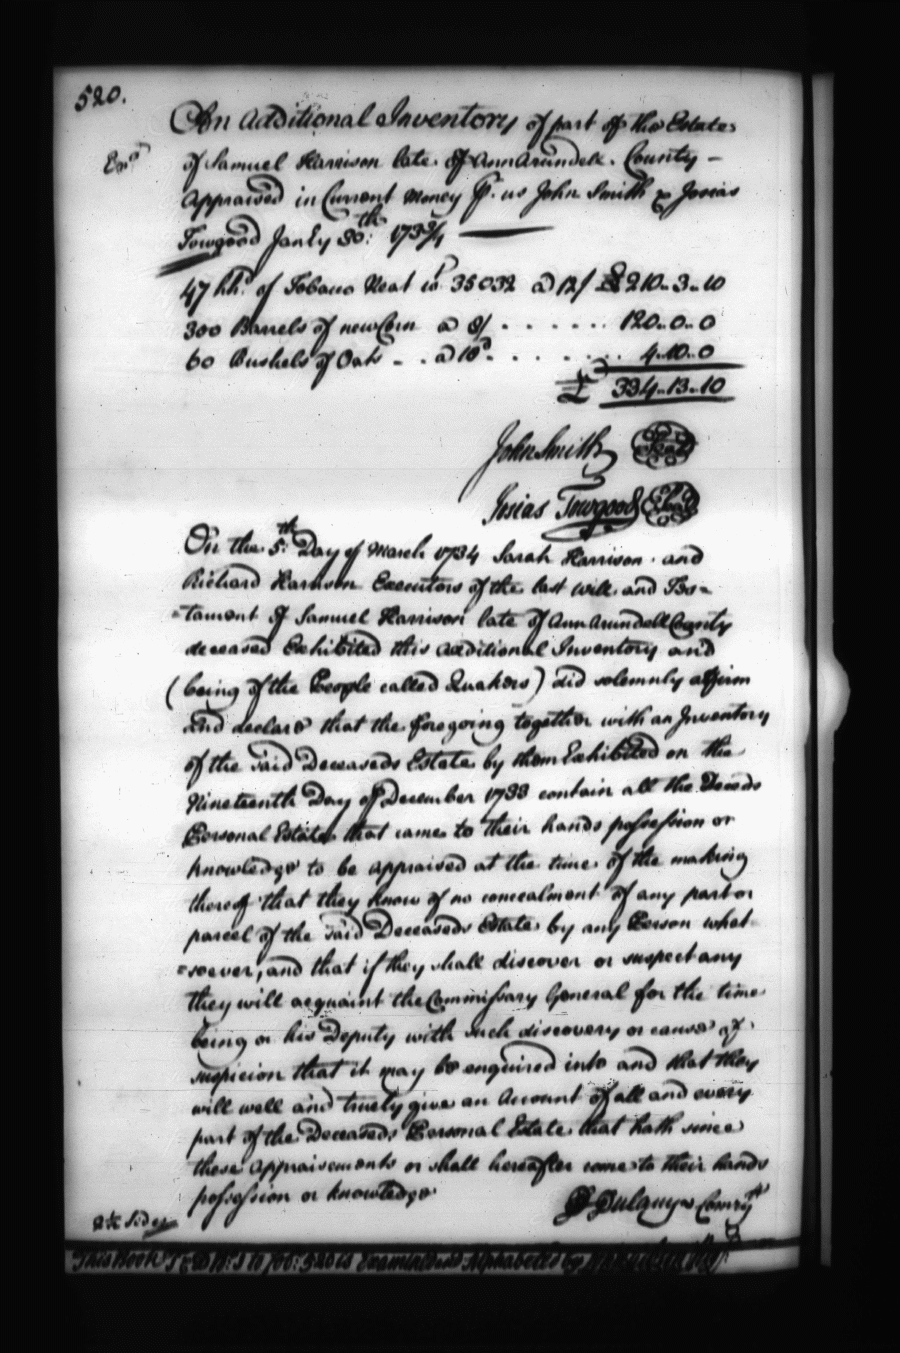 520.
An Additional Inventory of part of the Estate
Exd
of Samuel Harrison late of Ann Arundell County –
Appraised in Current Money P. us John Smith & Josias
Towgood Janly 30th: 1733/4
47 hhds of Tobacco Neat wt. 35032 a 12/ £ 210..3..10
300 Barrels of new Corn a 8/ . . . . . . 120..0..0
60 Bushels of Oats - . . a 18d. . . . . . . 4..10..0
£ 334..13..10
John Smith Seal
Josias Towgood Seal
On the 5th: Day of March 1734 Sarah Harrison and
Richard Harrison Executors of the last will and Tes=
=tament of Samuel Harrison late of Ann Arundell County
deceased Exhibited this additional Inventory and
(being of the People called Quakers) did solemnly affirm
and declare that the foregoing together with an Inventory
of the said Deceaseds Estate by them Exhibited on the
Nineteenth Day of December 1733 contain all the Deceds
Personal Estate that came to their hands possession or
knowledge to be appraised at the time of the making
thereof that they know of no concealment of any part or
parcel of the said Deceaseds Estate by any Person what
=soever, and that if they shall discover or suspect any
they will acquaint the Commissary General for the time
being or his Deputy with such discovery or cause of
suspicion that it may be enquired into and that they
will well and truely give an Account of all and every
part of the Deceaseds Personal Estate that hath since
these appraisements or shall hereafter come to their hands
possession or knowledge
D Dulany Comry
2½ Sides
This Book is Examined and Alphabeted by